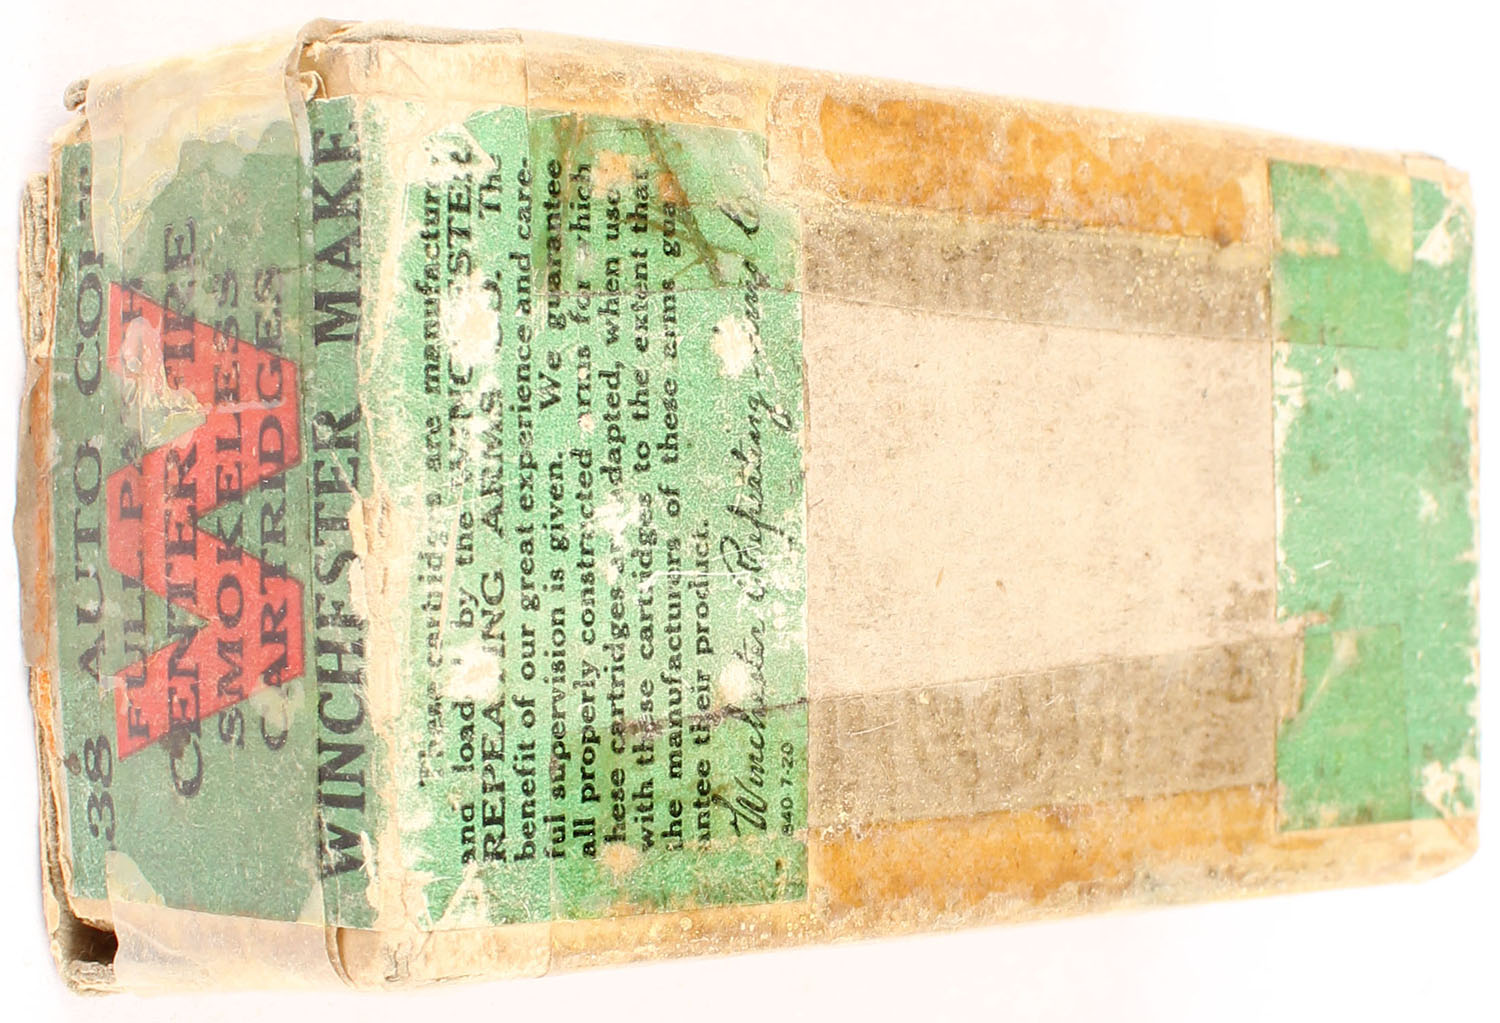 38 AUTO COL
FULL PATCH
CENTER FIRE
SMOKELESS
CARTRIDGES
WINCHESTER MAKE
These cartridges are manufactur
and load by the WINCHESTER
REPEATING ARMS CO. The
benefit of our great experience and care-
ful supervision is given. We guarantee
all properly constructed arms for which
hese cartridges ar adapted, when use
with these cartridges to the extent that
the manufacturers of these arms gua
antee their product.
Winchester Repeating Arms C
840 7-20